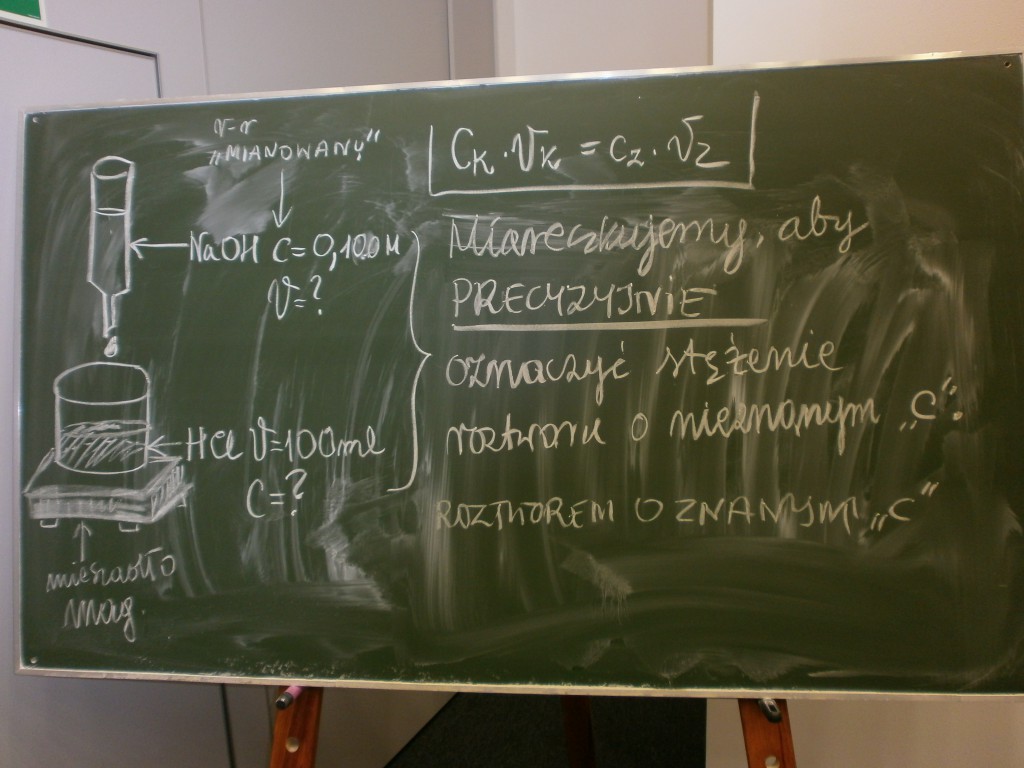 r-r
"MIANOWANY"
NaOH C=0,100M
V=?
HCl V=100ml
C=?
mieszadło
mag.
Ck·Vk = cz·Vz
Miareczkujemy, aby
PRECYZYJNIE
oznaczyć stężenie
roztworu o nieznanym „C".
ROZTWOREM O ZNANYM „C"